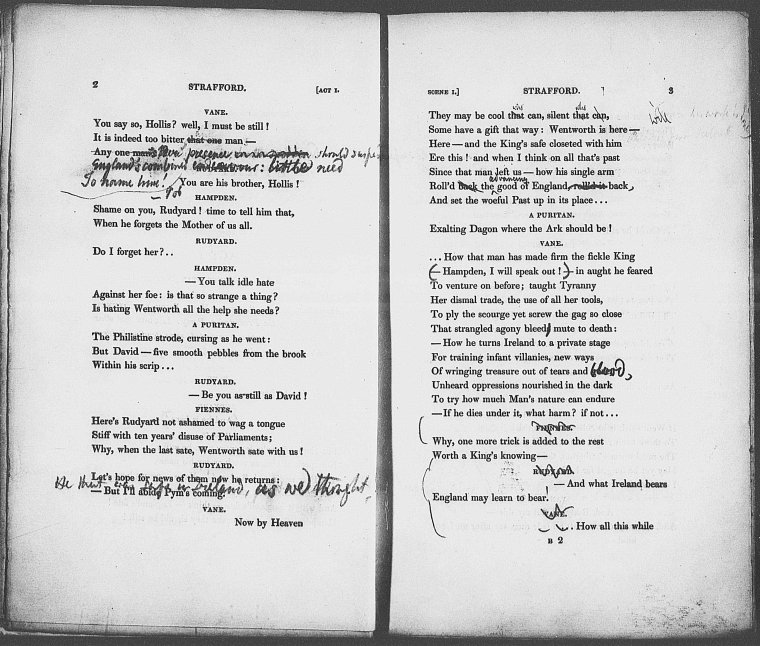 2
STRAFFORD.
[ACT I.
VANE.
You say so, Hollis? well, I must be still!
It is indeed too bitter that one man —
Any one man's
England's combined endeavour: little need
To home him! You are his brother, Hollis!
HAMPDEN.
Shame on you, Rudyard! time to tell him that,
When he forgets the Mother of us all.
RUDYARD.
Do I forget her?..
HAMPDEN.
— You talk idle hate
Against her foe: is that so strange a thing?
Is hating Wentworth all the help she needs?
A PURITAN.
The Philistine strode, cursing as he went:
But David — five smooth pebbles from the brook
Within his scrip...
RUDYARD.
— Be you as still as David!
FIENNES.
Here's Rudyard not ashamed to wag a tongue
Stiff with ten years' disuse of Parliaments;
Why, when the last sate, Wentworth sate with us!
RUDYARD.
Let's hope for news of them now he returns:
, as we thought
— But I'll abide Pym's coming.
VANE.
Now by Heaven
SCENE I.]
STRAFFORD.
3
They may be cool that can, silent that can,
will
Some have a gift that way: Wentworth is here —
Here — and the King's safe closeted with him
Ere this! and when I think on all that's past
Since that man left us — how his single arm
advancing
Roll'd back the good of England, roll'd it back,
And set the woeful Past up in its place...
A PURITAN.
Exalting Dagon where the Ark should be!
VANE.
... How that man has made firm the fickle King
(— Hampden, I will speak out! —) in aught he feared
To venture on before; taught Tyranny
Her dismal trade, the use of all her tools,
To ply the scourge yet screw the gag so close
That strangled agony bleeds mute to death:
— How he turns Ireland to a private stage
For training infant villanies, new ways
Of wringing treasure out of tears and blood,
Unheard oppressions nourished in the dark
To try how much Man's nature can endure
— If he dies under it, what harm? if not...
FIENNES.
Why, one more trick is added to the rest
Worth a King's knowing —
RUDYARD.
— And what Ireland bears
England may learn to bear.
VANE.
... How all this while
B 2